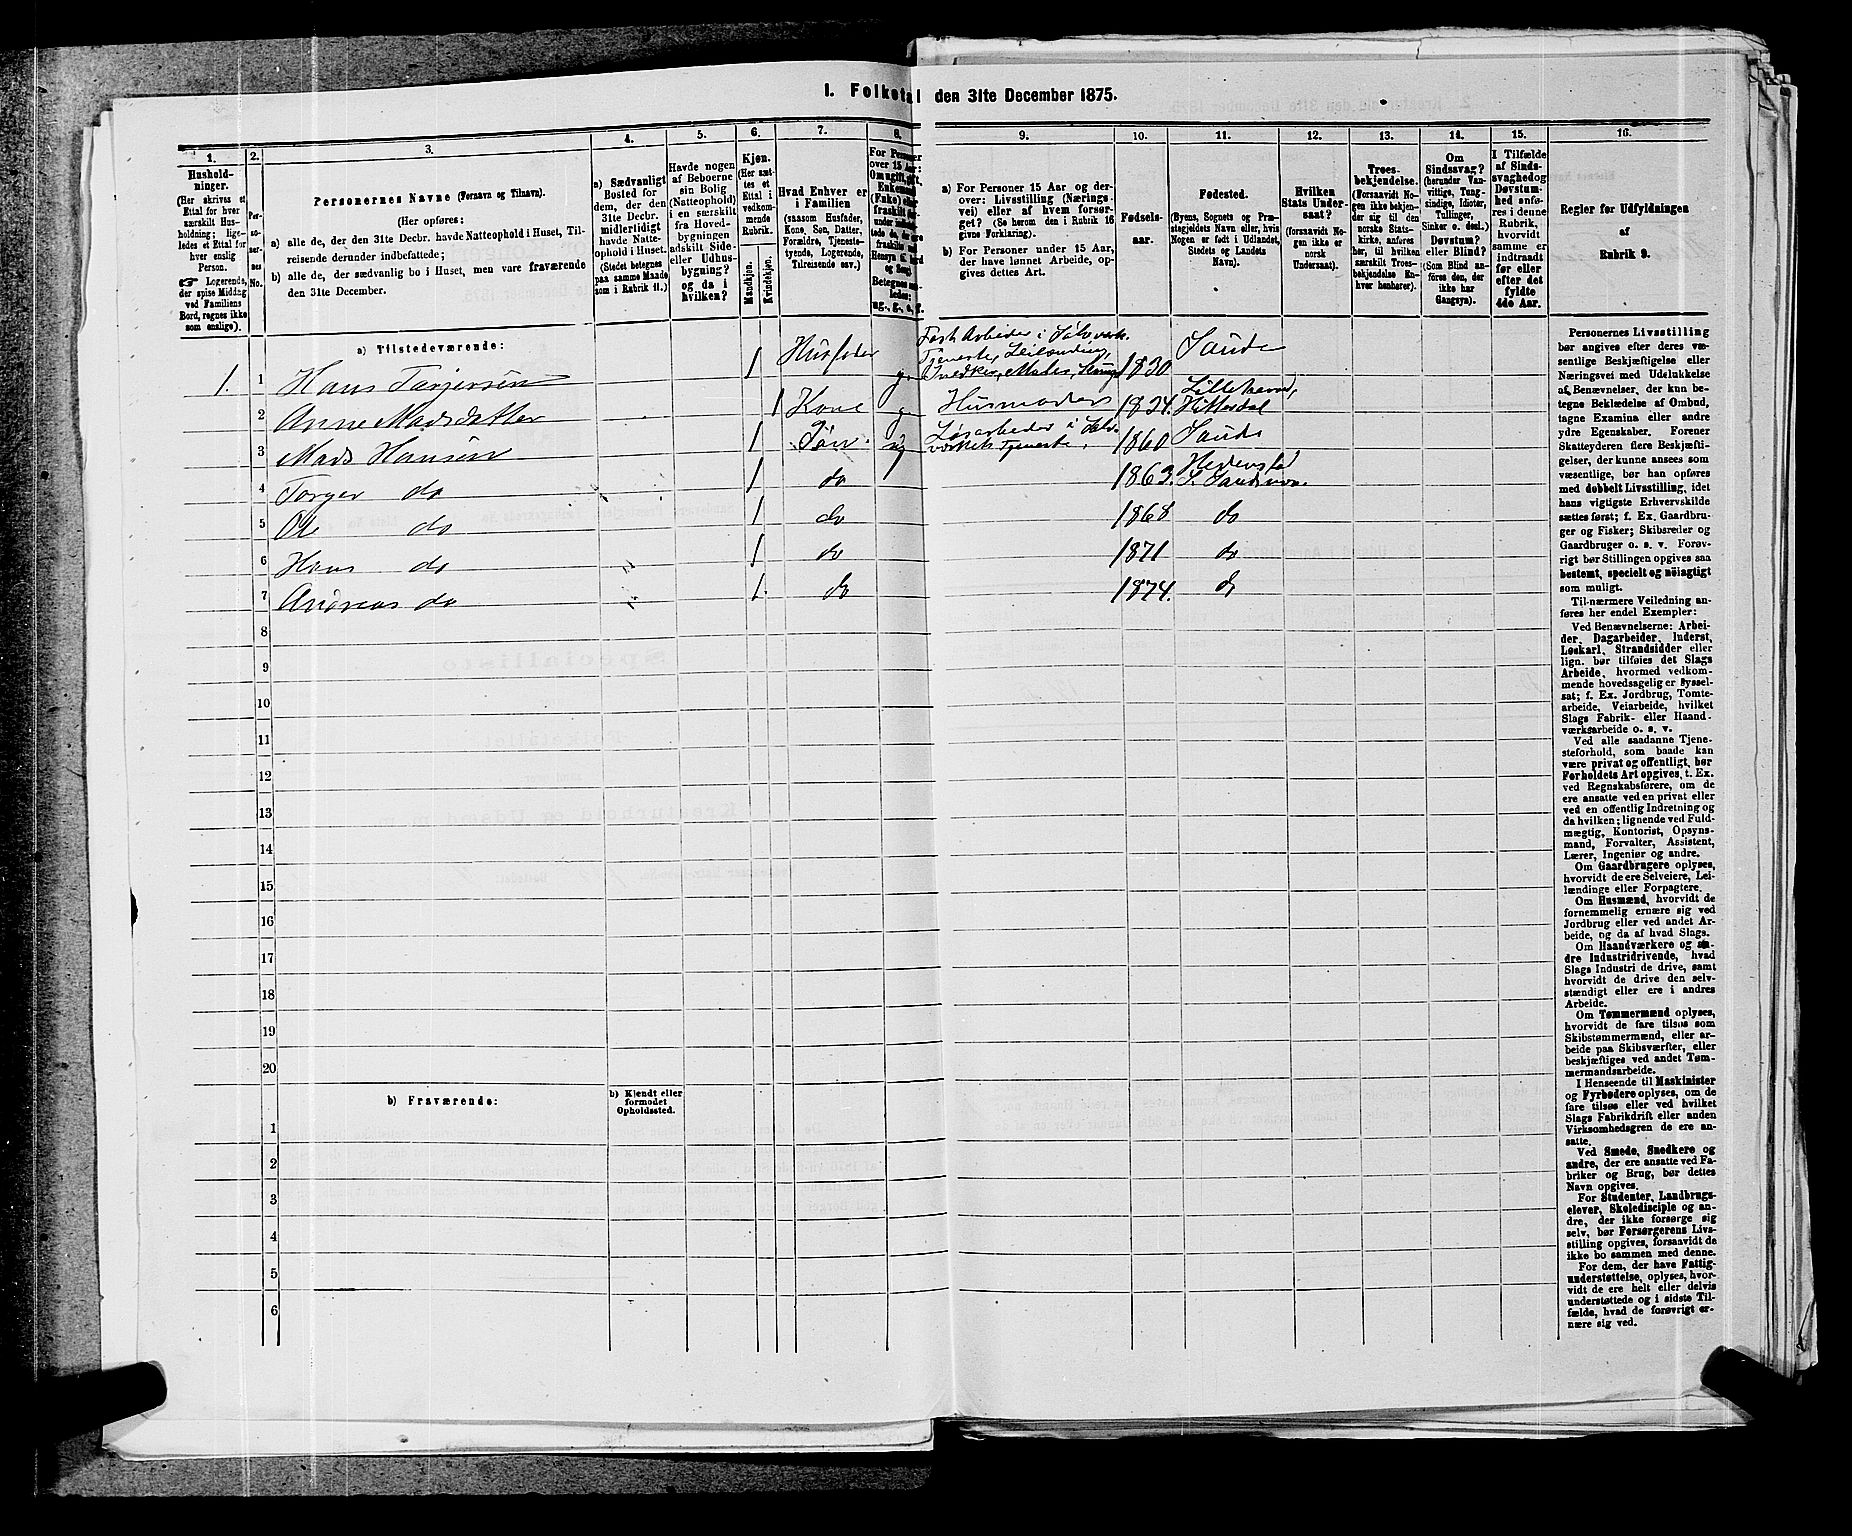 I. Folketal den 31te December 1875.
1. 2. 3. 4. 5. 6. 7. 8. 9. 10. 11. 12. 13. 14. 15. 16.
Hushold-
ninger.
(Her skrives et
Ettal for hver
særskilt Hus-
holdning; lige-
ledes et Ettal for
hver enslig
Person.
☛ Logerende,
der spise Middag
ved Familiens
Bord, regnes ikke
som enslige).
Per-
soner-
nes
No.
Personernes Navne (Fornavn og Tilnavn).
(Her opføres:
a) alle de, der den 31te Decbr. havde Natteophold i Huset, Til-
reisende derunder indbefattede;
b) alle de, der sædvanlig bo i Huset, men vare fraværende
den 31te December.
a) Sædvanligt
Bosted for
dem, der den
31te Decbr.
midlertidigt
havde Natte-
ophold i Huset.
(Stedet betegnes
paa samme Maade
som i Rubrik 11.)
Havde nogen
af Beboerne
sin Bolig
(Natteophold)
i en særskilt
fra Hoved-
bygningen
adskilt Side-
eller Udhus-
bygning?
og da i
hvilken?
Kjøn.
(Her sæt-
tes et
Ettal i
vedkom-
mende
Rubrik.
Mandkjøn.
Kvindekjøn.
Hvad Enhver er
i Familien
(saasom Husfader,
Kone, Søn, Datter,
Forældre, Tjeneste-
tyende, Logerende,
Tilreisende osv.)
a) For Personer 15 Aar og der-
over: Livsstilling (Nærings-
vei) eller af hvem forsør-
get? (Se herom den i Rubrik 16
givne Forklaring).
b) For Personer under 15 Aar,
der have lønnet Arbeide, op-
gives dettes Art.
Fødsels-
aar.
Fødested.
(Byens, Sognets og Præ-
stegjeldets Navn eller, hvis
Nogen er født i Udlandet,
Stedets og Landets
Navn).
Hvilken
Stats Under-
saat?
(forsaavidt No-
gen ikke er
norsk
Undersaat).
Troes-
bekjendelse.
(Forsaavidt No-
gen ikke bekjen-
der sig til den
norske Stats-
kirke, anføres
her, til hvilken
særskilt Troes-
bekjendelse En-
hver henhører).
Om
Sindssvag?
(herunder Van-
vittige, Tung-
sindige, Idioter,
Tullinger,
Sinker o. desl.)
Døvstum?
eller Blind?
(Som Blind an-
føres den, der
ikke har
Gangsyn).
I Tilfælde
af Sinds-
svaghed og
Døvstum-
hed anfø-
res i denne
Rubrik,
hvorvidt
samme er
indtraadt
før eller
efter det
fyldte
4de Aar.
Regler for Udfyldningen
af
Rubrik 9.
a) Tilstedeværende:
1. 1 Hans Torjersen 1 Husfader g. 1830 Saude
2 Anne Madsdatter 1 Kone g Husmoder 1834. Lilleherred, Hitterdal
3 Mads Hansen 1 Søn ug Løsarbeder i Sølv- 1860 Saude
4 Torger do 1 do 1863
5 Ole do 1 do 1868 do
6 Hans do 1 do 1871 do
7 Andreas do 1 do 1874. do
8
9
10
11
12
13
14
15
16
17
18
19
20
b) Fraværende:
b) Kjendt eller
formodet
Opholdssted.
1
2
3
4
5
6
Personernes Livsstilling
bør angives efter deres væ-
sentlige Beskjæftigelse eller
Næringsvei med Udelukkelse
af Benævnelser, der kun be-
tegne Beklædelse af Ombud,
tagne Examina eller andre
ydre Egenskaber. Forener
Skatteyderen flere Beskjæfti-
gelser, der kunne ansees som
væsentlige, bør han opføres
med dobbelt Livsstilling, idet
hans vigtigste Erhvervskilde
sættes først; f. Ex. Gaardbru-
ger og Fisker; Skibsreder og
Gaardbruger o. s. v. Forøv-
rigt bør Stillingen opgives saa
bestemt, specielt og nøiagtigt
som muligt.
Til nærmere Veiledning an-
føres her endel Exempler:
Ved Benævnelserne: Arbei-
der, Dagarbeider, Inderst,
Løskarl, Strandsidder eller
lign. bør tilføies det Slags
Arbeide, hvormed vedkom-
mende hovedsagelig er syssel-
sat; f. Ex. Jordbrug, Tomte-
arbeide, Veiarbeide, hvilket
Slags Fabrik- eller Haand-
værksarbeide o. s. v.
Ved alle saadanne Tjene-
steforhold, som baade kan
være privat og offentligt, bør
Forholdets Art opgives, t. Ex.
ved Regnskabsførere, om de
ere ansatte ved en privat eller
ved en offentlig Indretning og
da hvilken; lignende ved Fuld-
mægtig, Kontorist, Opsyns-
mand, Forvalter, Assistent,
Lærer, Ingeniør og andre.
Om Gaardbrugere oplyses,
hvorvidt de ere Selveiere, Lei-
lændinge eller Forpagtere.
Om Husmænd, hvorvidt de
fornemmelig ernære sig ved
Jordbrug eller ved andet Ar-
beide, og da af hvad Slags.
Om Haandværkere og an-
dre Industridrivende, hvad
Slags Industri de drive, samt
hvorvidt de drive den selv-
stændigt eller ere i andres
Arbeide.
Om Tømmermænd oplyses,
hvorvidt de fare tilsøs som
Skibstømmermænd, eller ar-
beide paa Skibsværfter, eller
beskjæftiges ved andet Tøm-
mermandsarbeide.
I Henseende til Maskinister
og Fyrbødere oplyses, om de
fare tilsøs eller ved hvilket
Slags Fabrikdrift eller anden
Virksomhedsgren de ere an-
satte.
Ved Smede, Snedkere og
andre, der ere ansatte ved Fa-
briker og Brug, bør dettes
Navn opgives.
For Studenter, Landbrugs-
elever, Skoledisciple og an-
dre, der ikke forsørge sig
selv, bør Forsørgerens Livs-
stilling opgives, forsaavidt de
ikke bo sammen med denne.
For dem, der have Fattig-
understøttelse, oplyses, hvor-
vidt de ere helt eller delvis
understøttede og i sidste Til-
fælde, hvad de forøvrigt er-
nære sig ved.